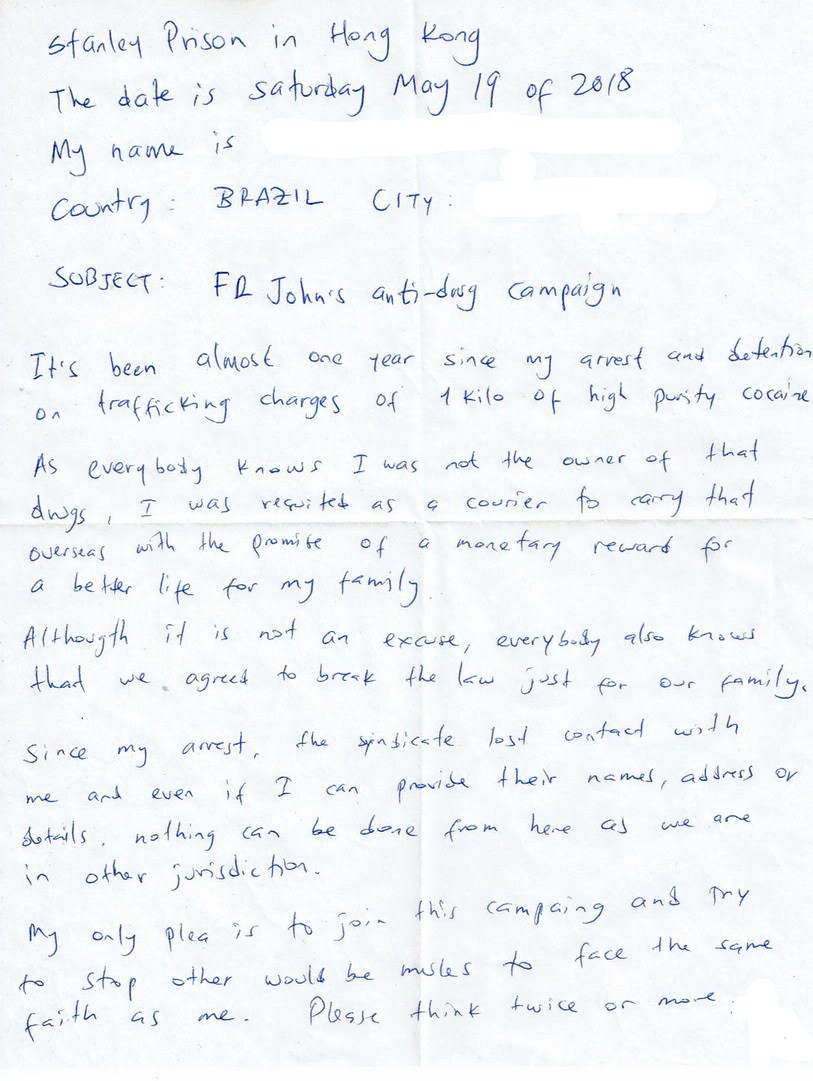 Stanley Prison in Hong Kong
The date is saturday May 19 of 2018
My name is
Country: BRAZIL CITY:
SUBJECT: FR John's anti-drug campaign
It's been almost one year since my arrest and detention
on trafficking charges of 1 Kilo of high purity cocaine
As everybody knows I was not the owner of that
drugs, I was requited as a courier to carry that
overseas with the promise of a monetary reward for
a better life for my family.
Althougth it is not an excuse, everybody also knows
that we agreed to break the law just for our family.
Since my arrest, the syndicate lost contact with
me and even if I can provide their names, address or
details. nothing can be done from here as we are
in other jurisdiction.
My only plea is to join this campaing and try
to stop other would be mules to face the same
faith as me. Please think twice or more.